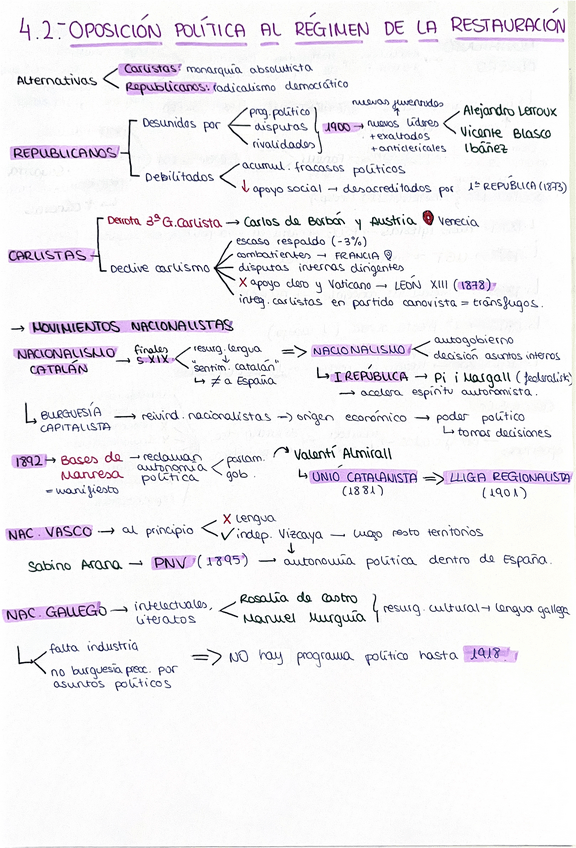 4.2.- OPOSICIÓN POLÍTICA AL RÉGIMEN DE LA RESTAURACIÓN
Alternativas
Carlistas: monarquía absolutista
Republicanos: radicalismo democrático
REPUBLICANOS
Desunidos por
prog. político
disputas
rivalidades
1900 →
nuevas juventudes
nuevos líderes
+ exaltados
+ anticlericales
Alejandro Lerroux
Vicente Blasco
Ibáñez
Debilitados
acumul. fracasos políticos
↓ apoyo social → desacreditados por 1ª REPÚBLICA (1873)
CARLISTAS
Derrota 3ª G. Carlista → Carlos de Borbón y Austria Venecia
Declive carlismo
escaso respaldo (-3%)
combatientes → FRANCIA
disputas internas dirigentes
X apoyo clero y Vaticano → LEÓN XIII (1878)
integ. carlistas en partido canovista = tránsfugos.
→ MOVIMIENTOS NACIONALISTAS
NACIONALISMO CATALÁN → finales S XIX
resurg. lengua
"sentim. catalán"
↳ ≠ a España
=> NACIONALISMO
autogobierno
decisión asuntos internos
↳ I REPÚBLICA → Pi i Margall (federalista)
→ acelera espíritu autonomista.
↳ BURGUESÍA CAPITALISTA → reivind. nacionalistas → origen económico → poder político
↳ tomar decisiones
1892 → Bases de Manresa → reclaman autonomía política
= manifiesto
parlam.
gob.
Valentí Almirall
↳ UNIÓ CATALANISTA => LLIGA REGIONALISTA
(1881) (1901)
NAC. VASCO → al principio
X lengua
✓ indep. Vizcaya → luego resto territorios
Sabino Arana → PNV (1895) → autonomía política dentro de España.
NAC. GALLEGO → intelectuales, literatos
Rosalía de Castro
Manuel Murguía
resurg. cultural → lengua gallega
falta industria
no burguesía preoc. por
asuntos políticos
=> NO hay programa político hasta 1918.